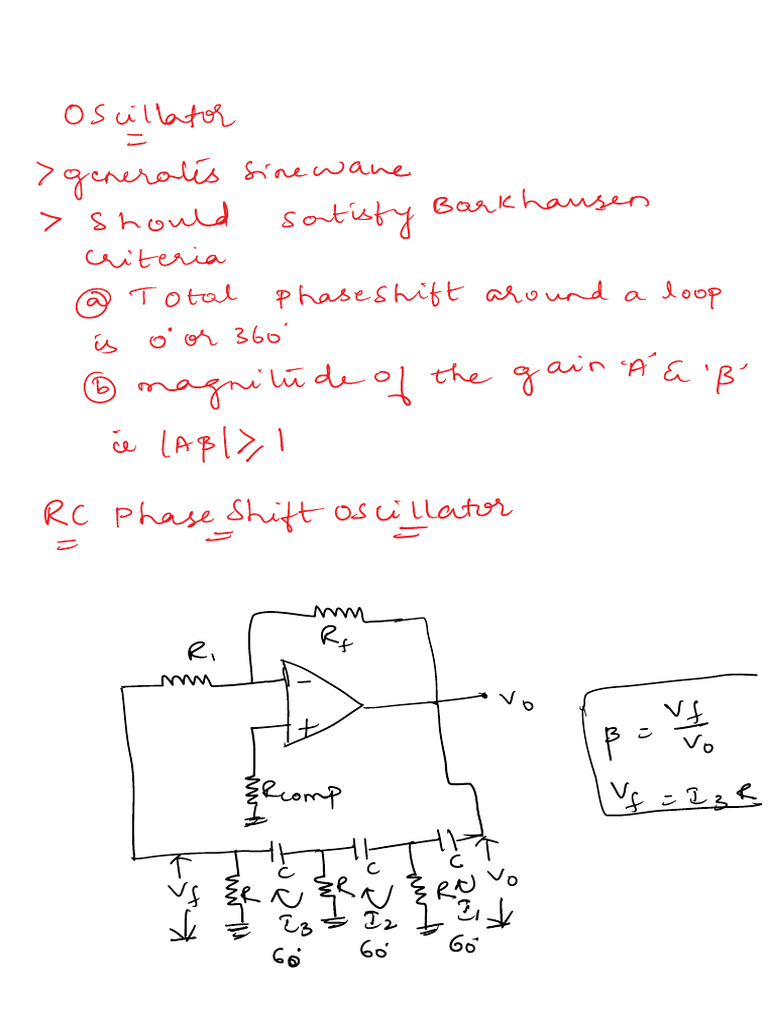 Oscillator
> generates sinewave
> Should satisfy Barkhausen
criteria
ⓐ Total phase shift around a loop
is 0° or 360°
ⓑ magnitude of the gain 'A' & 'β'
ie |Aβ| ≥ 1
RC Phase Shift oscillator
Rf
R1
-
V0
+
β = Vf/V0
Rcomp
Vf = I3 R
C C C
Vf R R R V0
I3 I2 I1
60° 60° 60°